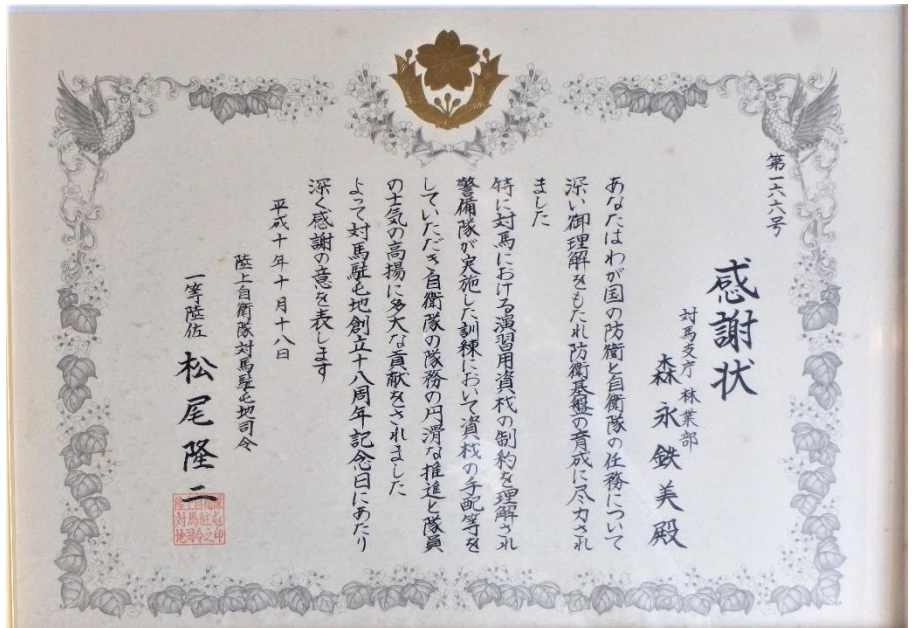 第一六六号
感謝状
対馬支庁 林業部
森永鉄美殿
あなたはわが国の防衛と自衛隊の任務について
深い御理解をもたれ防衛基盤の育成に尽力され
ました
特に対馬における演習用資材の制約を理解され
警備隊が実施した訓練において資材の手配等を
していただき自衛隊の隊務の円滑な推進と隊員
の士気の高揚に多大な貢献をされました
よって対馬駐屯地創立十八周年記念日にあたり
深く感謝の意を表します
平成十年十月十八日
陸上自衛隊対馬駐屯地司令
一等陸佐 松尾隆二